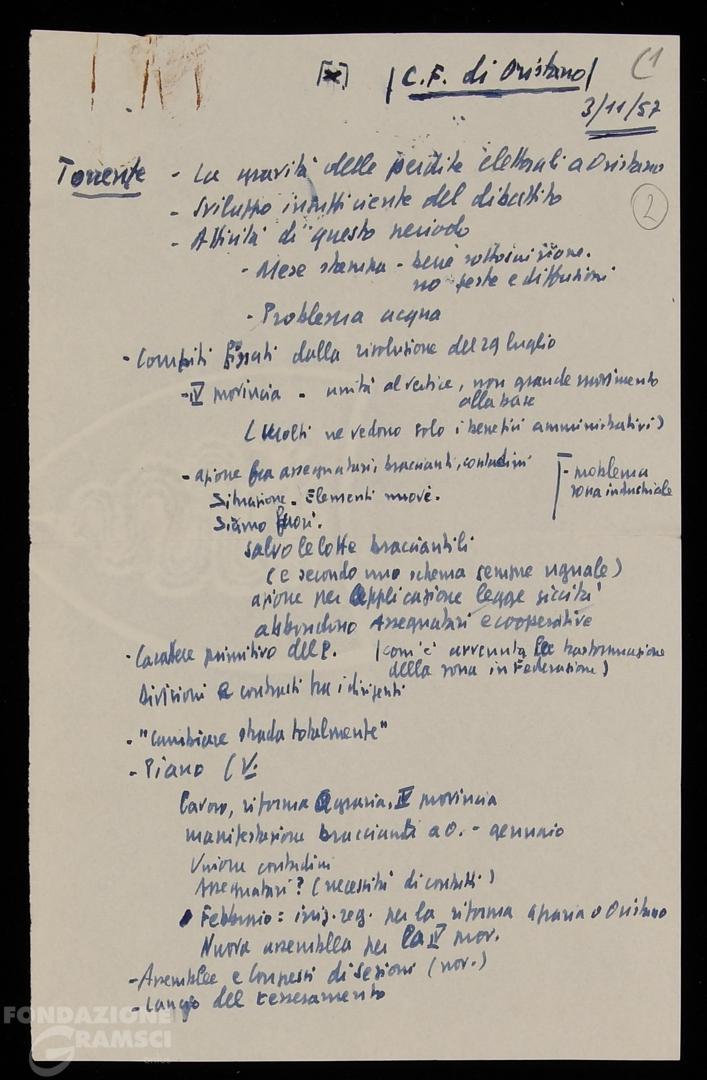 [x] | C.F. di Oristano | (1
3/11/57
Torrente - La gravità delle perdite elettorali a Oristano
- Sviluppo insufficiente del dibattito
2
- Attività di questo periodo
- Mese stampa - bene sottoscrizione.
no feste e diffusioni
- Problema acqua
- Compiti fissati dalla risoluzione del 29 luglio
- IV provincia - unità al vertice, non grande movimento
alla base
(Molti ne vedono solo i benefici amministrativi)
- azione fra assegnatari, braccianti, contadini
- problema
zona industriale
Situazione. Elementi nuovi.
Siamo fuori.
salvo le lotte bracciantili
(e secondo uno schema sempre uguale)
azione per applicazione legge siccità
abbandono assegnatari e cooperative
- Carattere primitivo del P. (com'è avvenuta la trasformazione
della zona in Federazione)
Divisioni e contrasti tra i dirigenti
- "Cambiare strada totalmente"
- Piano (V.
Lavoro, riforma agraria, IV provincia
manifestazione braccianti a O. - gennaio
Unione contadini
Assegnatari? (necessità di contatti)
Febbraio: iniz. reg. per la riforma agraria a Oristano
Nuova assemblea per la IV prov.
- Assemblee e Congressi di sezioni (nov.)
- Lancio del tesseramento
FONDAZIONE
GRAMSCI